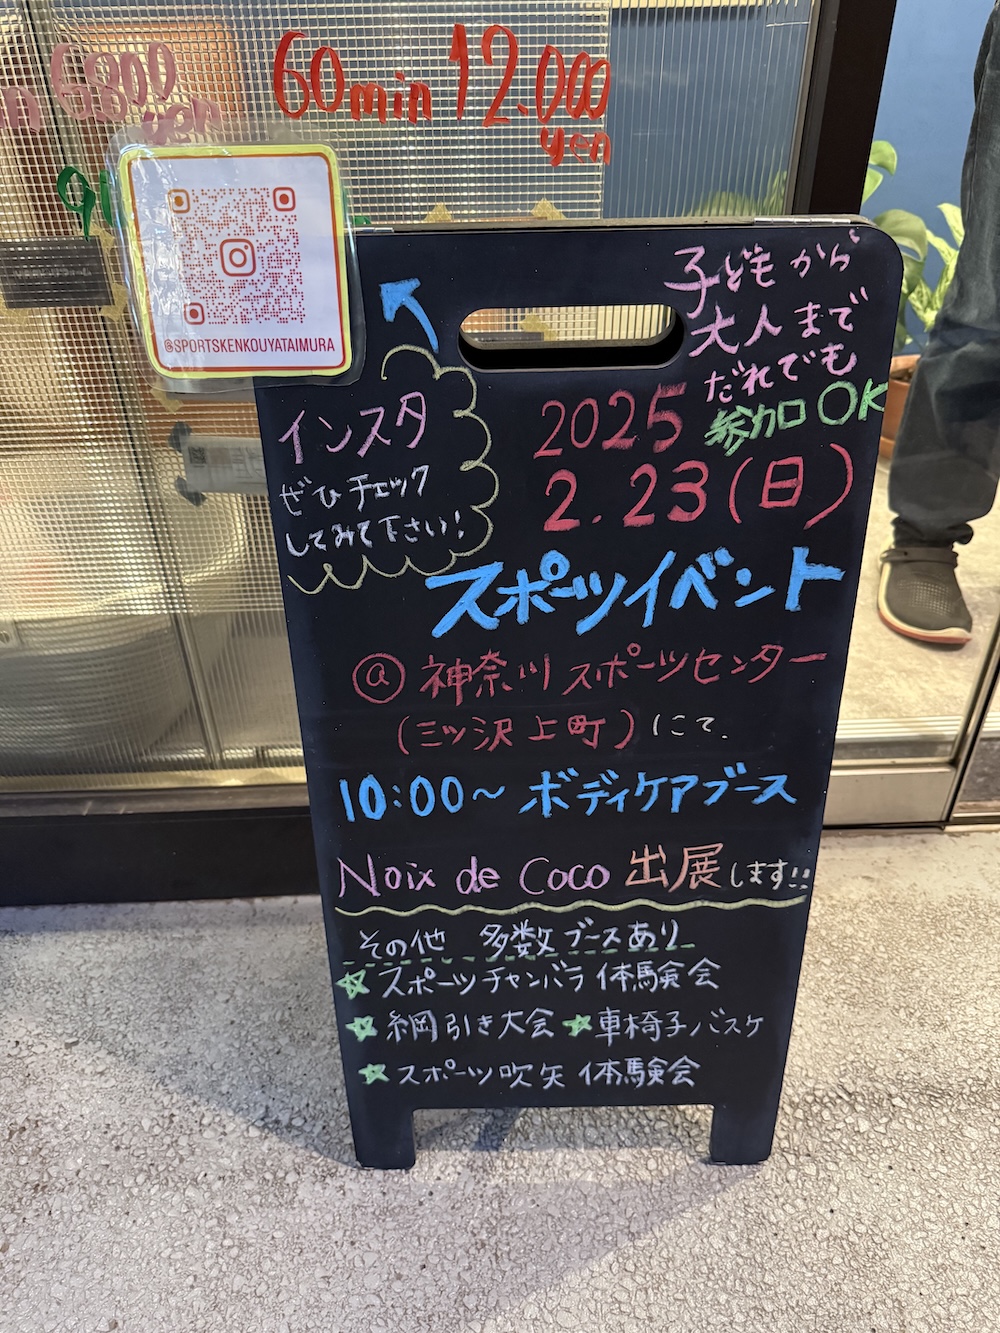 6800
yen
60min 12.000
yen
@SPORTSKENKOUYATAIMURA
子どもから
大人まで
だれでも
参加○OK
インスタ
ぜひチェック
してみて下さい!
2025
2.23(日)
スポーツイベント
@神奈川スポーツセンター
(三ッ沢上町)にて.
10:00~ ボディケアブース
Noix de Coco 出展します!!
その他 多数ブースあり
☆スポーツチャンバラ体験会
☆綱引き大会☆車椅子バスケ
☆スポーツ吹矢体験会